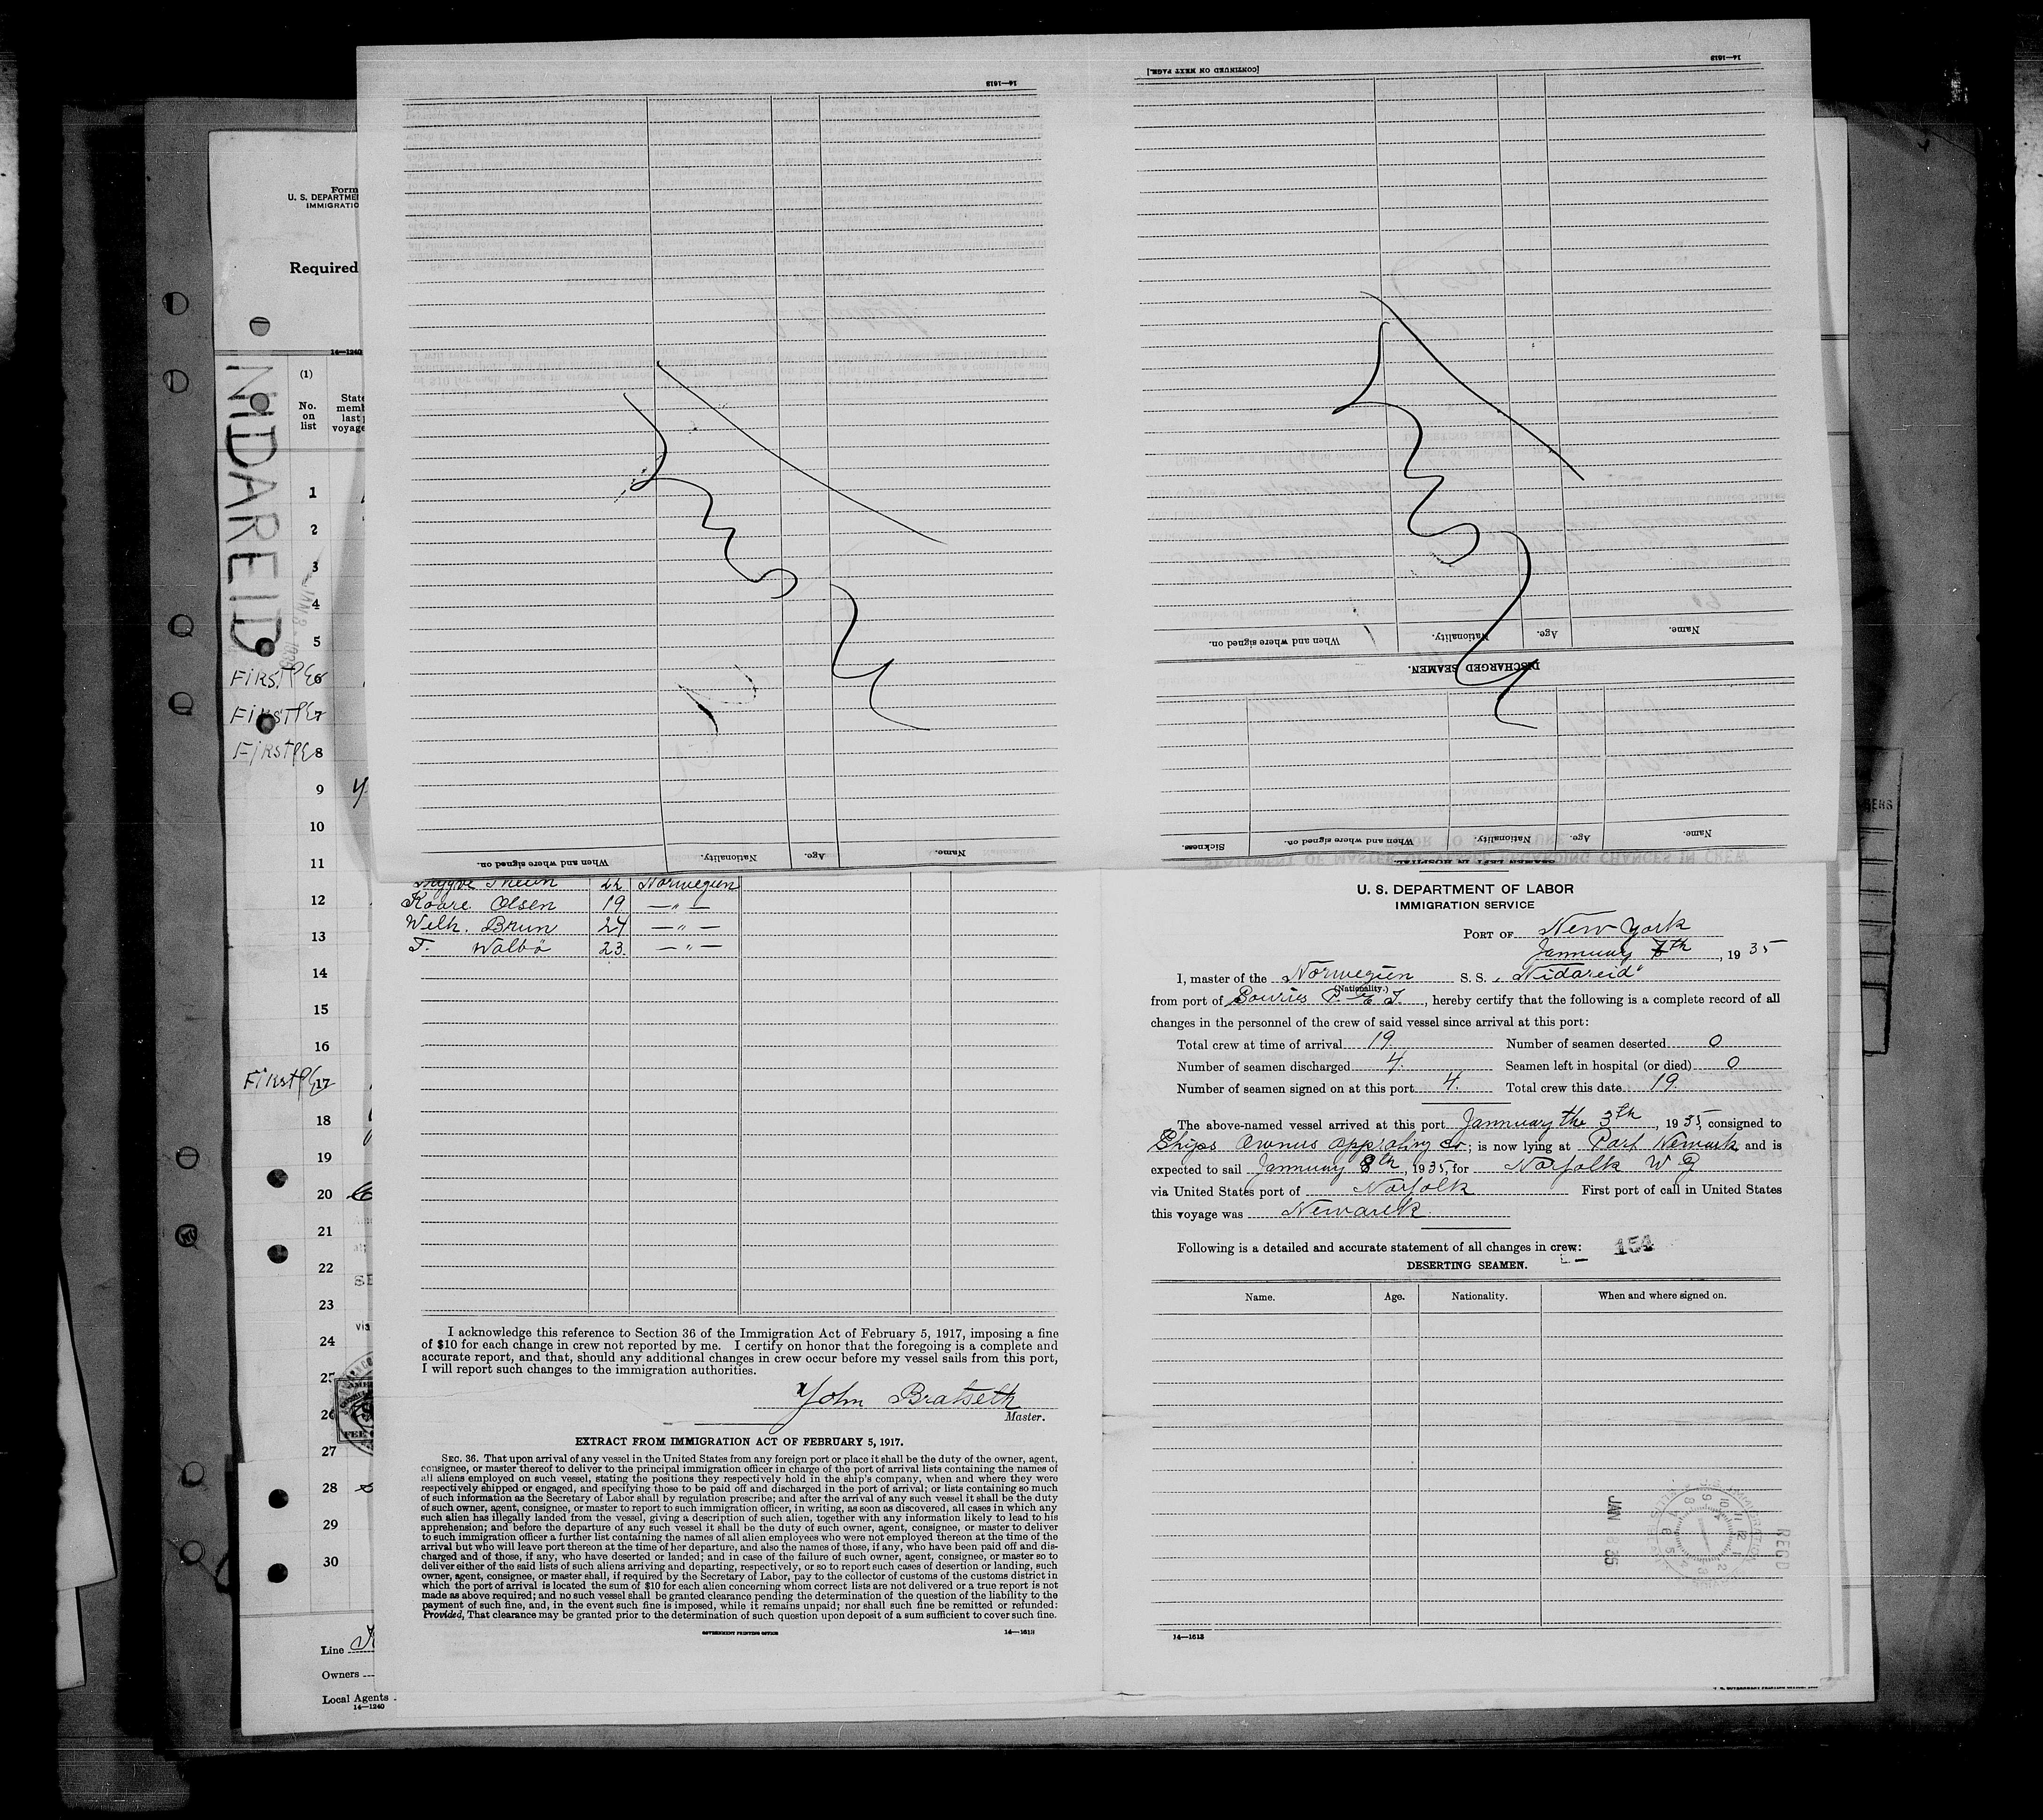 14—1613
[CONTINUED ON NEXT PAGE.]
14—1613
Name.
Age.
Nationality.
When and where signed on.
DISCHARGED SEAMEN.
Name.
Age.
Nationality.
When and where signed on.
Sickness.
Name.
Age.
Nationality.
When and where signed on.
Form
U. S. DEPARTME
IMMIGRATIO
Required
14—1240
NIDAREID
(1)
No.
on
list
State
memb
last
voyage
1
2
3
4
5
First 6
First 7
First 8
9
10
11
12
13
14
15
16
First 17
18
19
20
21
22
23
24
25
26
27
28
29
30
Line
Owners
Local Agents
14—1240
22 Norwegian
Kaare Olsen 19 —"—
Wilh. Brun 24 —"—
T. Walbö 23. —"—
I acknowledge this reference to Section 36 of the Immigration Act of February 5, 1917, imposing a fine
of $10 for each change in crew not reported by me. I certify on honor that the foregoing is a complete and
accurate report, and that, should any additional changes in crew occur before my vessel sails from this port,
I will report such changes to the immigration authorities.
John Bratseth
Master.
EXTRACT FROM IMMIGRATION ACT OF FEBRUARY 5, 1917.
SEC. 36. That upon arrival of any vessel in the United States from any foreign port or place it shall be the duty of the owner, agent,
consignee, or master thereof to deliver to the principal immigration officer in charge of the port of arrival lists containing the names of
all aliens employed on such vessel, stating the positions they respectively hold in the ship's company, when and where they were
respectively shipped or engaged, and specifying those to be paid off and discharged in the port of arrival; or lists containing so much
of such information as the Secretary of Labor shall by regulation prescribe; and after the arrival of any such vessel it shall be the duty
of such owner, agent, consignee, or master to report to such immigration officer, in writing, as soon as discovered, all cases in which any
such alien has illegally landed from the vessel, giving a description of such alien, together with any information likely to lead to his
apprehension; and before the departure of any such vessel it shall be the duty of such owner, agent, consignee, or master to deliver
to such immigration officer a further list containing the names of all alien employees who were not employed thereon at the time of the
arrival but who will leave port thereon at the time of her departure, and also the names of those, if any, who have been paid off and dis-
charged and of those, if any, who have deserted or landed; and in case of the failure of such owner, agent, consignee, or master so to
deliver either of the said lists of such aliens arriving and departing, respectively, or so to report such cases of desertion or landing, such
owner, agent, consignee, or master shall, if required by the Secretary of Labor, pay to the collector of customs of the customs district in
which the port of arrival is located the sum of $10 for each alien concerning whom correct lists are not delivered or a true report is not
made as above required; and no such vessel shall be granted clearance pending the determination of the question of the liability to the
payment of such fine, and, in the event such fine is imposed, while it remains unpaid; nor shall such fine be remitted or refunded:
Provided, That clearance may be granted prior to the determination of such question upon deposit of a sum sufficient to cover such fine.
GOVERNMENT PRINTING OFFICE
14—1613
U. S. DEPARTMENT OF LABOR
IMMIGRATION SERVICE
PORT OF New York
January th, 1935
I, master of the Norwegian S. S. „Nidareid"
(Nationality.)
from port of P. E. I., hereby certify that the following is a complete record of all
changes in the personnel of the crew of said vessel since arrival at this port:
Total crew at time of arrival 19. Number of seamen deserted 0
Number of seamen discharged 4. Seamen left in hospital (or died) 0
Number of seamen signed on at this port 4. Total crew this date 19.
The above-named vessel arrived at this port Jannuary the 3th, 1935, consigned to
Ships Co; is now lying at Port Newark and is
expected to sail Jannuary 8th, 1935, for Norfolk
via United States port of Norfolk First port of call in United States
this voyage was Newark.
Following is a detailed and accurate statement of all changes in crew: 154
DESERTING SEAMEN.
Name. Age. Nationality. When and where signed on.
JAN 8 35
RECD
14—1613